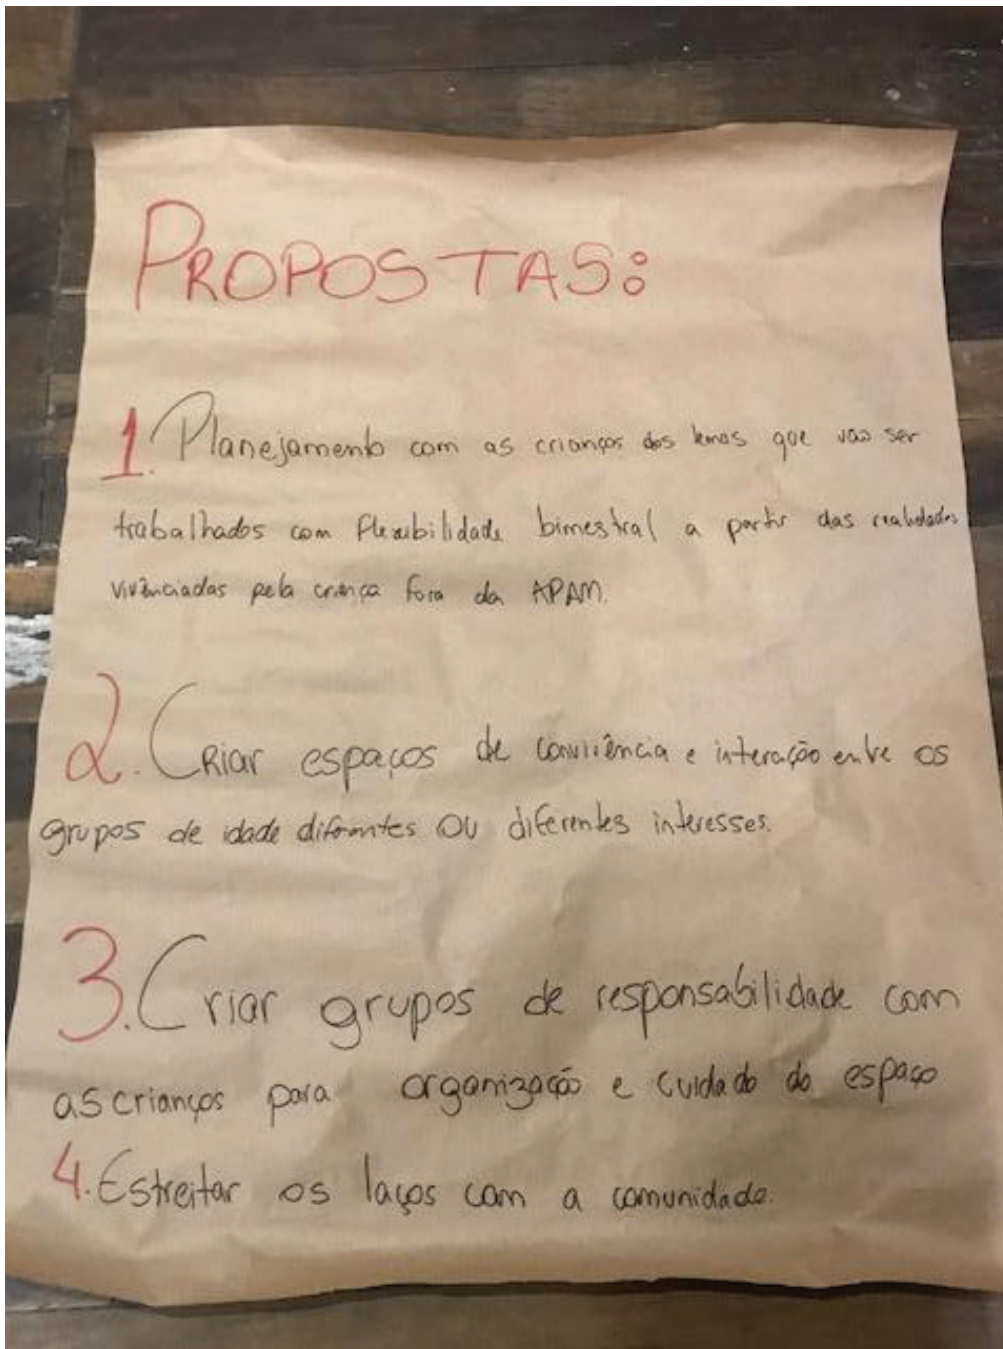 PROPOSTAS:
1. Planejamento com as crianças dos temas que vão ser
trabalhados com flexibilidade bimestral a partir das realidades
vivênciadas pela criança fora da APAM.
2. Criar espaços de convivência e interação entre os
grupos de idade diferentes OU diferentes interesses.
3. Criar grupos de responsabilidade com
as crianços para organização e cuidado do espaço
4. Estreitar os laços com a comunidade.